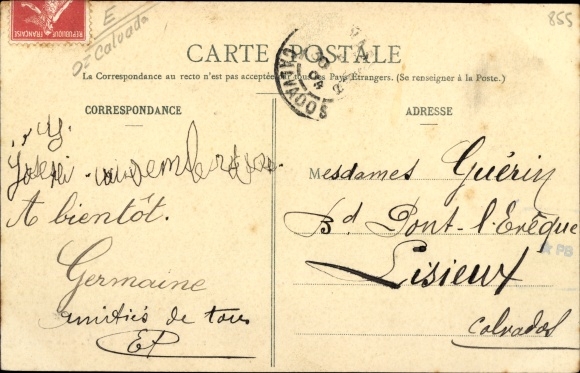 855
E
Dt Calvados
REPUBLIQUE FRANÇAISE
CARTE POSTALE
CALVADOS
La Correspondance au recto n'est pas acceptée par tous les Pays Etrangers. (Se renseigner à la Poste.)
CORRESPONDANCE
A bientôt.
Germaine
amitiés de tous
EP
ADRESSE
Mesdames Guérin
Bd Pont-l'Evêque
Lisieux
Calvados
PB